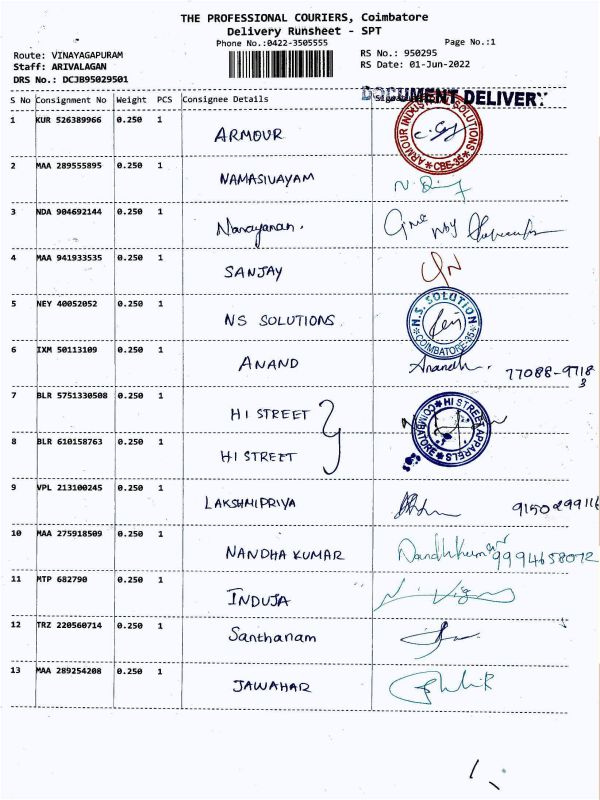 THE PROFESSIONAL COURIERS, Coimbatore
Delivery Runsheet - SPT
Phone No.:0422-3505555 Page No.:1
Route: VINAYAGAPURAM RS No.: 950295
Staff: ARIVALAGAN RS Date: 01-Jun-2022
DRS No.: DCJB95029501
DOCUMENT DELIVERY
S No Consignment No Weight PCS Consignee Details
1 KUR 526389966 0.250 1 ARMOUR
ARMOUR INDUSTRIAL SOLUTIONS * CBE-35 *
2 MAA 289555895 0.250 1 NAMASIVAYAM
3 NDA 904692144 0.250 1 Narayanan.
4 MAA 941933535 0.250 1 SANJAY
5 NEY 40052052 0.250 1 NS SOLUTIONS
N.S. SOLUTION * COIMBATORE-35 *
6 IXM 50113109 0.250 1 ANAND Anandh. 77088-97183
7 BLR 5751330508 0.250 1 HI STREET
HI STREET APPARELS * COIMBATORE *
8 BLR 610158763 0.250 1 HI STREET
9 VPL 213100245 0.250 1 LAKSHMIPRIYA 9150299116
10 MAA 275918509 0.250 1 NANDHA KUMAR Nandhkumar 9994658072
11 MTP 682790 0.250 1 INDUJA
12 TRZ 220560714 0.250 1 Santhanam
13 MAA 289254208 0.250 1 JAWAHAR